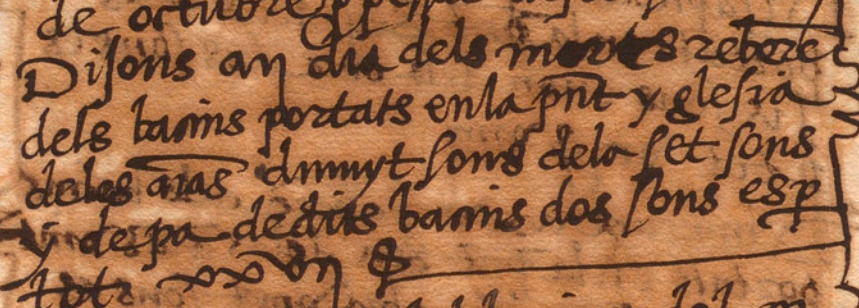 de octubre
Disons an dia dels morts rebere
dels bacins portats en la pnt yglesia
deles aias dinuyt sons dela set sons
y de pa dedits bacins dos sons esp
tot xxvij